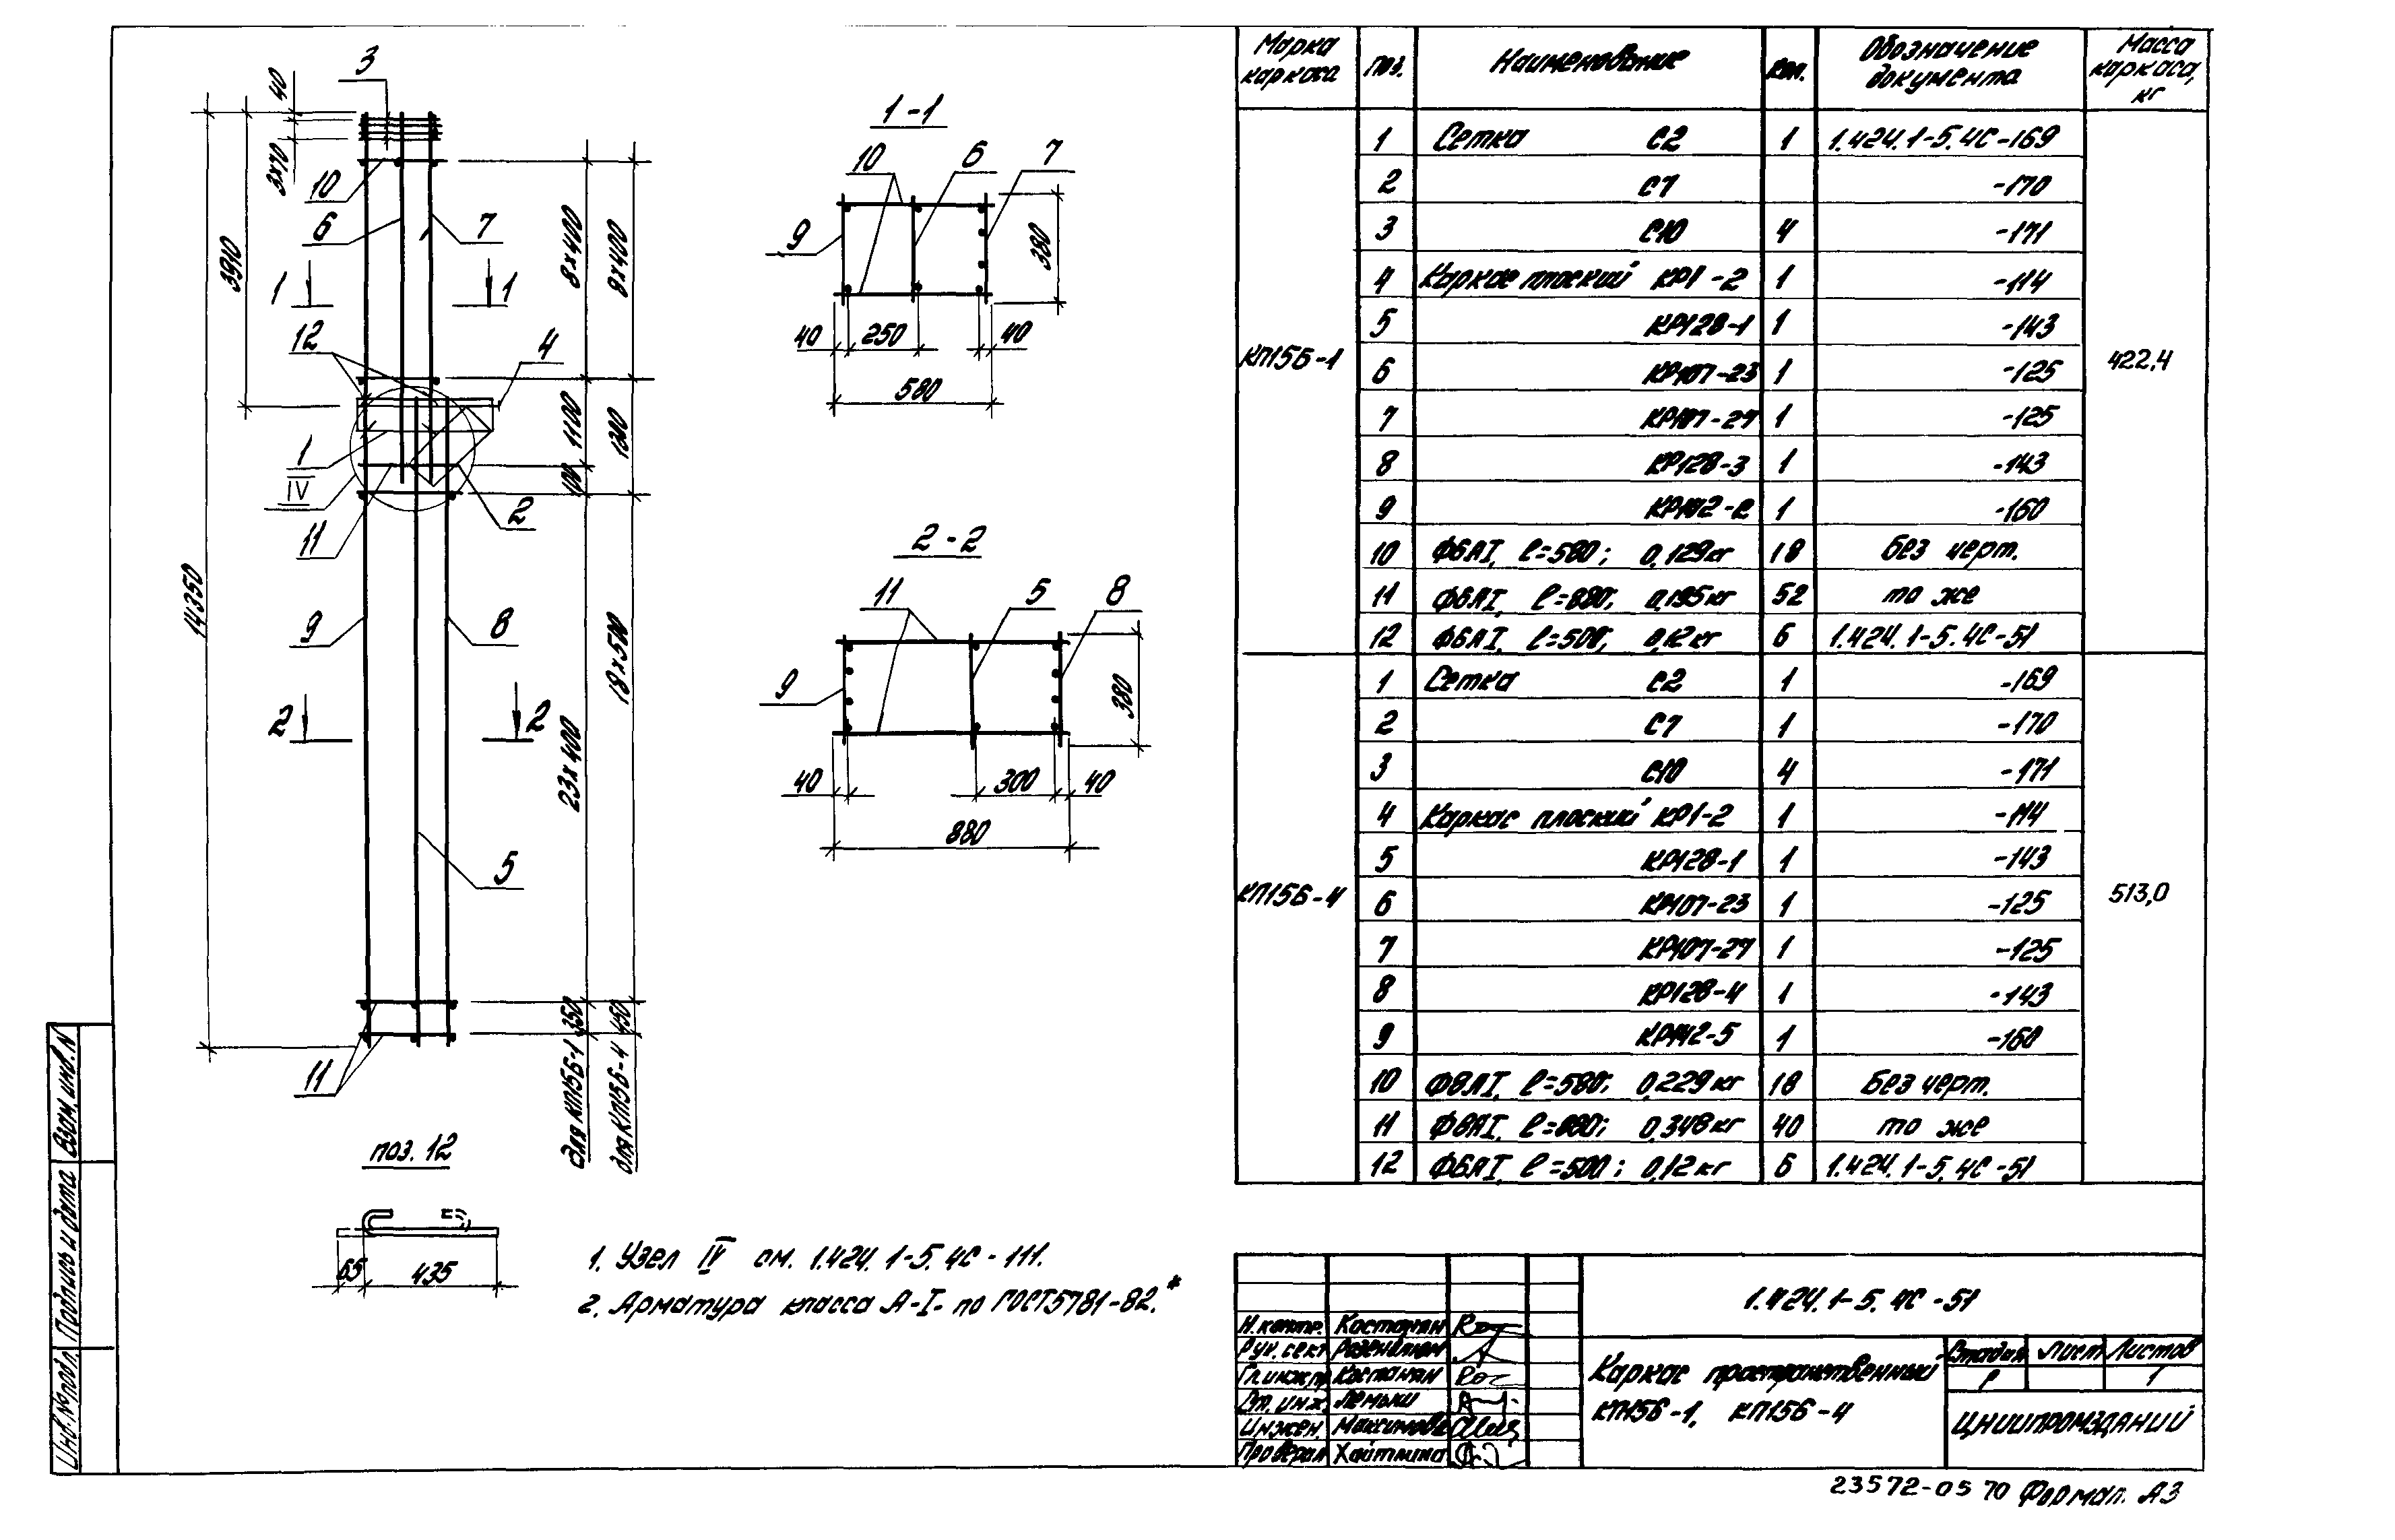 3
40
3х70
10
6
7
3910
1
1
12
4
8х400
8х400
1100
1300
100
1
IV
11
2
14350
9
8
18х500
23х400
2
2
5
350
450
11
для КП15Б-1
для КП15Б-4
1-1
10
6
7
9
380
40
250
40
580
2-2
11
5
8
9
380
40
300
40
880
поз. 12
65
435
1. Узел IV см. 1.424.1-5.4С-111.
2. Арматура класса А-I- по ГОСТ5781-82.*
Марка каркаса
Поз.
Наименование
Кол.
Обозначение документа
Масса каркаса, кг
КП15Б-1
422,4
1 Сетка С2 1 1.424.1-5.4С-169
2 С7 -170
3 С10 4 -171
4 Каркас плоский КР1-2 1 -114
5 КР128-1 1 -143
6 КР107-23 1 -125
7 КР107-27 1 -125
8 КР128-3 1 -143
9 1 -160
10 Ф6АI, ℓ=580; 0,129кг 18 Без черт.
11 Ф6АI, ℓ=880; 0,195кг 52 то же
12 Ф6АI, ℓ=500; 0,12кг 6 1.424.1-5.4С-51
КП15Б-4
513,0
1 Сетка С2 1 -169
2 С7 1 -170
3 С10 4 -171
4 Каркас плоский КР1-2 1 -114
5 КР128-1 1 -143
6 КР107-23 1 -125
7 КР107-27 1 -125
8 КР128-4 1 -143
9 КР142-5 1 -160
10 Ф8АI, ℓ=580; 0,229кг 18 Без черт.
11 Ф8АI, ℓ=880; 0,348кг 40 то же
12 Ф6АI, ℓ=500; 0,12кг 6 1.424.1-5.4С-51
1.424.1-5.4С-51
Н.контр. Костанян
Рук. сект
Гл.инж.пр Костанян
Ст. инж.
Инжен. Максимова
Проверил Хайтлина
Каркас пространственный
КП15Б-1, КП15Б-4
Стадия Лист Листов
Р 1
ЦНИИПРОМЗДАНИЙ
Инв.№подл.
Подпись и дата
Взам.инв.N
23572-05 70 Формат А3